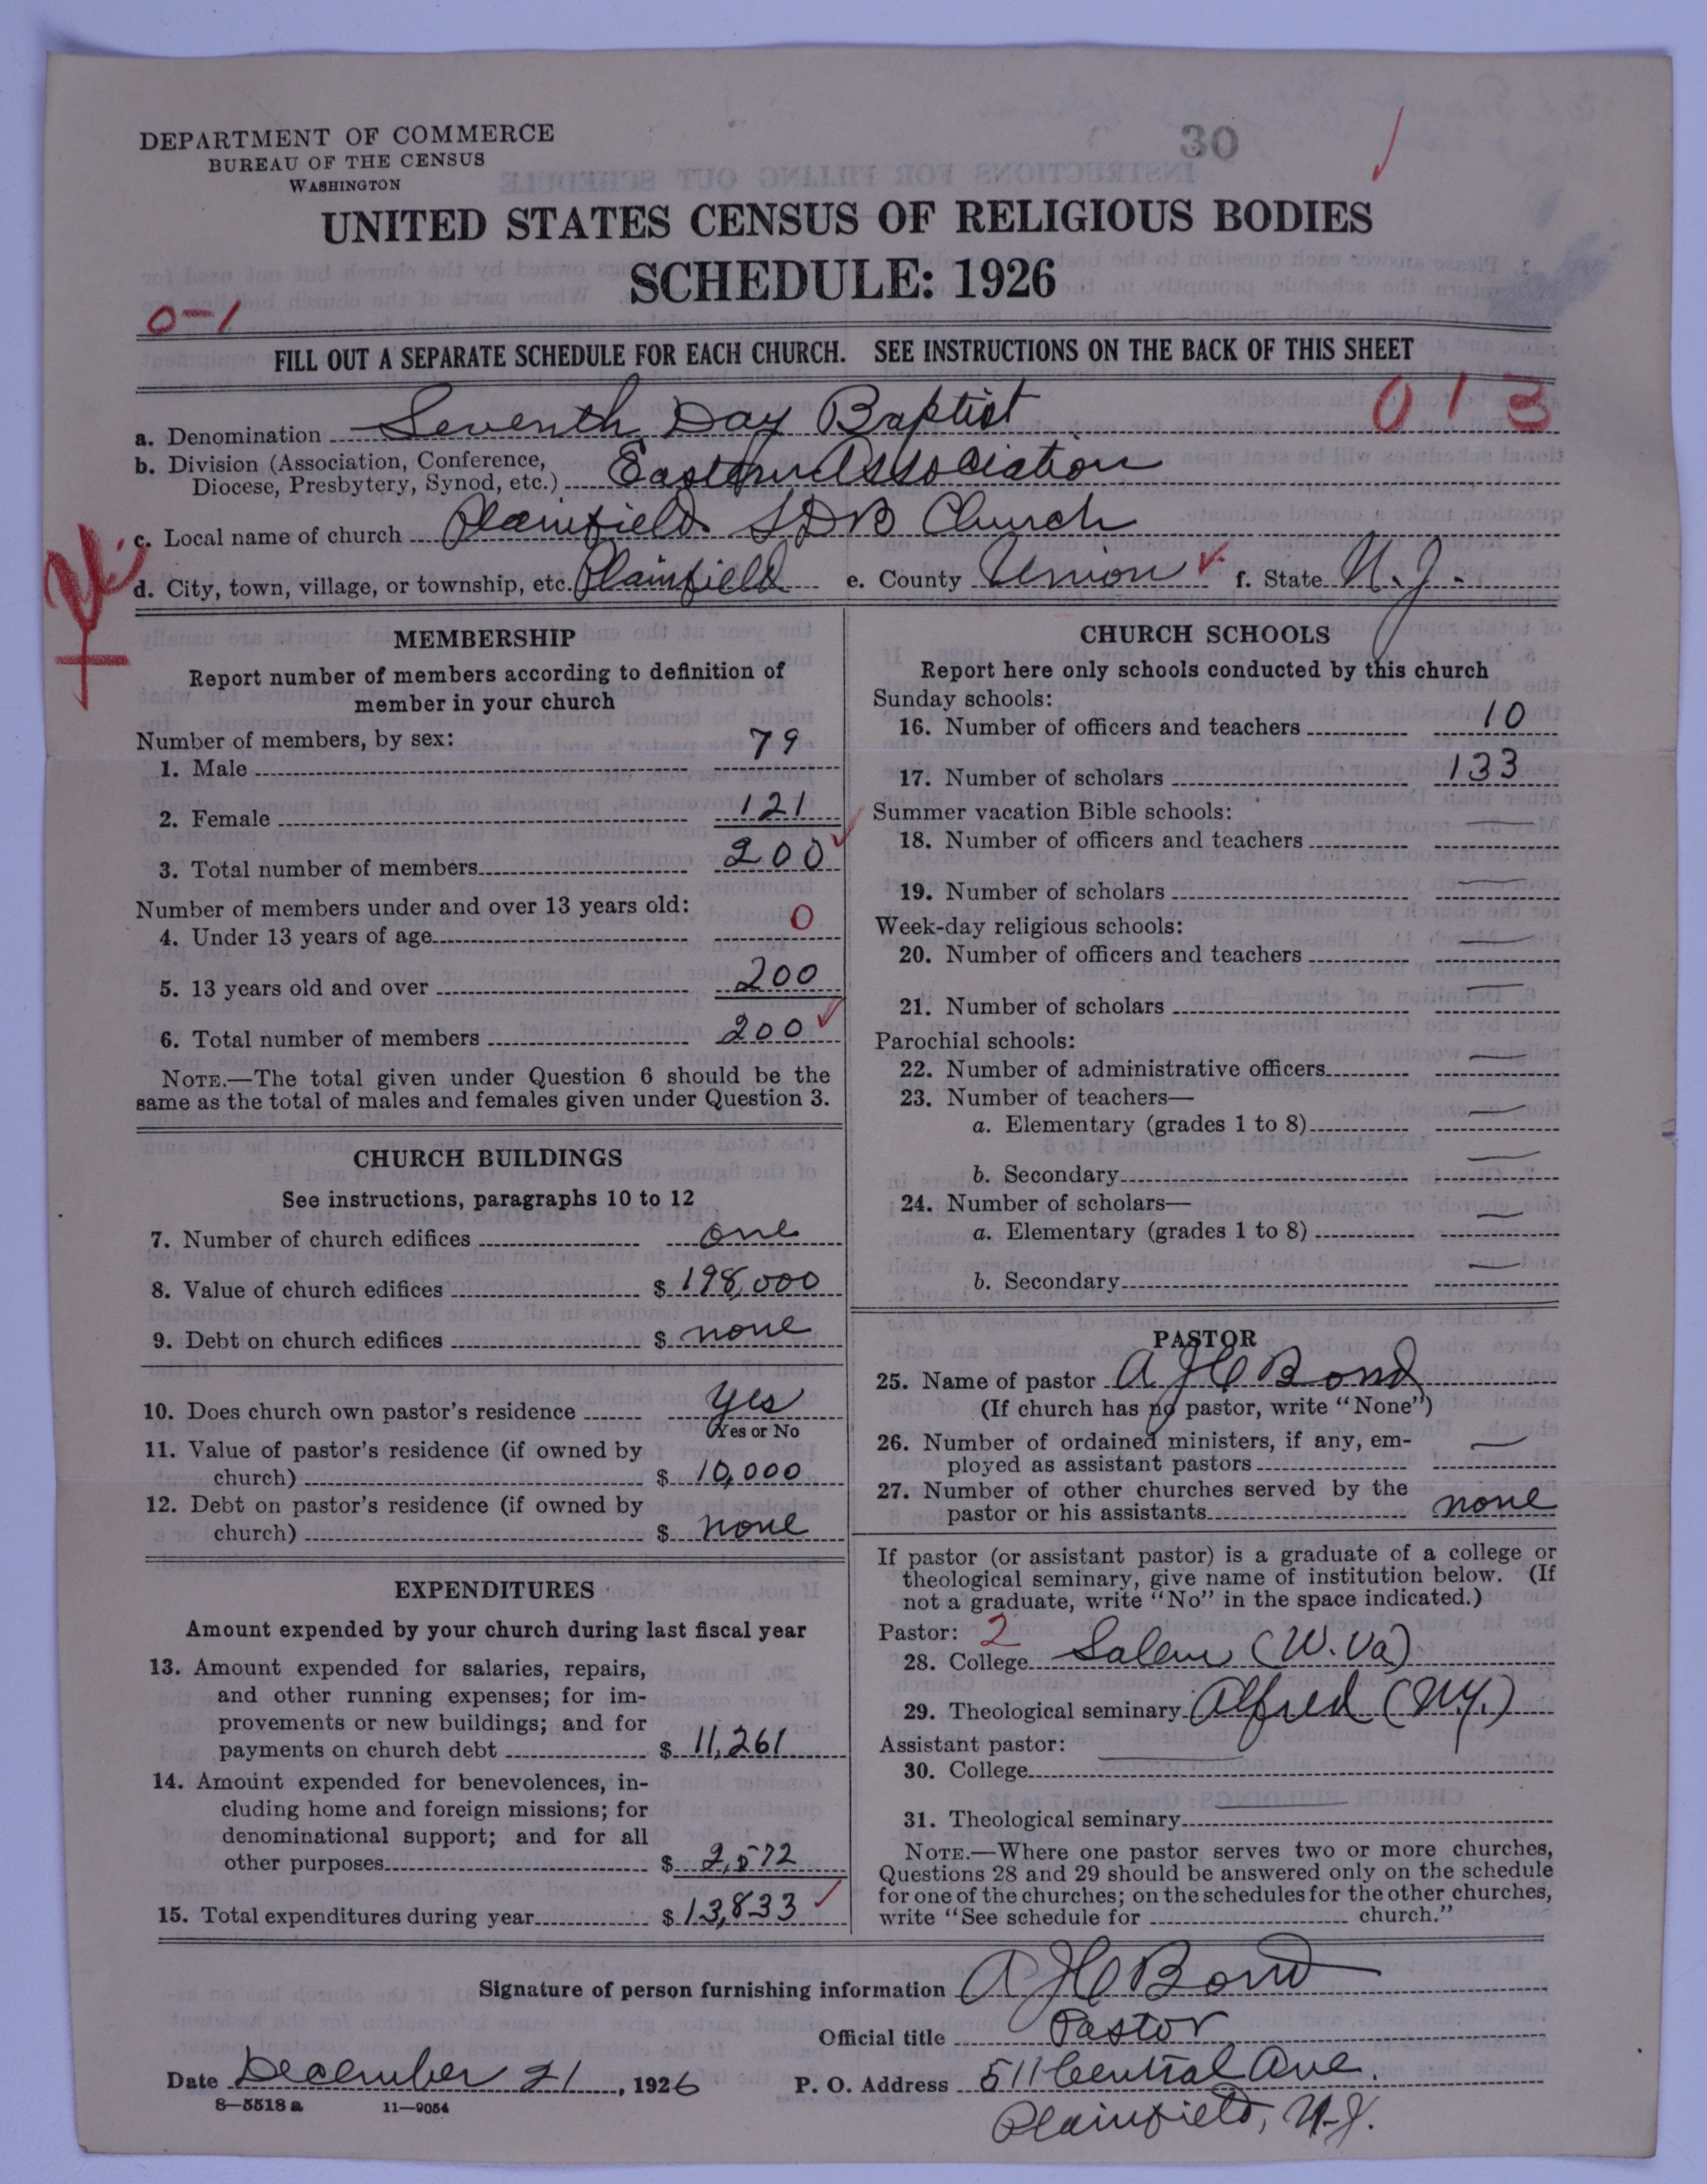 DEPARTMENT OF COMMERCE
BUREAU OF THE CENSUS
WASHINGTON
30
UNITED STATES CENSUS OF RELIGIOUS BODIES
SCHEDULE: 1926
0-1
FILL OUT A SEPARATE SCHEDULE FOR EACH CHURCH. SEE INSTRUCTIONS ON THE BACK OF THIS SHEET
013
a. Denomination Seventh Day Baptist
b. Division (Association, Conference,
Diocese, Presbytery, Synod, etc.) Eastern Association
c. Local name of church Plainfield SDB Church
d. City, town, village, or township, etc. Plainfield e. County Union f. State N.J.
MEMBERSHIP
Report number of members according to definition of
member in your church
Number of members, by sex:
1. Male 79
2. Female 121
3. Total number of members 200
Number of members under and over 13 years old:
4. Under 13 years of age 0
5. 13 years old and over 200
6. Total number of members 200
NOTE.—The total given under Question 6 should be the
same as the total of males and females given under Question 3.
CHURCH BUILDINGS
See instructions, paragraphs 10 to 12
7. Number of church edifices one
8. Value of church edifices $ 198,000
9. Debt on church edifices $ none
10. Does church own pastor's residence yes
Yes or No
11. Value of pastor's residence (if owned by
church) $ 10,000
12. Debt on pastor's residence (if owned by
church) $ none
EXPENDITURES
Amount expended by your church during last fiscal year
13. Amount expended for salaries, repairs,
and other running expenses; for im-
provements or new buildings; and for
payments on church debt $ 11,261
14. Amount expended for benevolences, in-
cluding home and foreign missions; for
denominational support; and for all
other purposes $ 2,572
15. Total expenditures during year $ 13,833
CHURCH SCHOOLS
Report here only schools conducted by this church
Sunday schools:
16. Number of officers and teachers 10
17. Number of scholars 133
Summer vacation Bible schools:
18. Number of officers and teachers —
19. Number of scholars —
Week-day religious schools:
20. Number of officers and teachers —
21. Number of scholars —
Parochial schools:
22. Number of administrative officers —
23. Number of teachers—
a. Elementary (grades 1 to 8) —
b. Secondary —
24. Number of scholars—
a. Elementary (grades 1 to 8) —
b. Secondary —
PASTOR
25. Name of pastor A J C Bond
(If church has no pastor, write "None")
26. Number of ordained ministers, if any, em-
ployed as assistant pastors —
27. Number of other churches served by the
pastor or his assistants none
If pastor (or assistant pastor) is a graduate of a college or
theological seminary, give name of institution below. (If
not a graduate, write "No" in the space indicated.)
Pastor: 2
28. College Salem (W. Va)
29. Theological seminary Alfred (N.Y.)
Assistant pastor:
30. College —
31. Theological seminary —
NOTE.—Where one pastor serves two or more churches,
Questions 28 and 29 should be answered only on the schedule
for one of the churches; on the schedules for the other churches,
write "See schedule for church."
Signature of person furnishing information A J C Bond
Official title Pastor
Date December 21, 1926 P. O. Address 511 Central Ave.
8—5518a 11—9054
Plainfield, N.J.